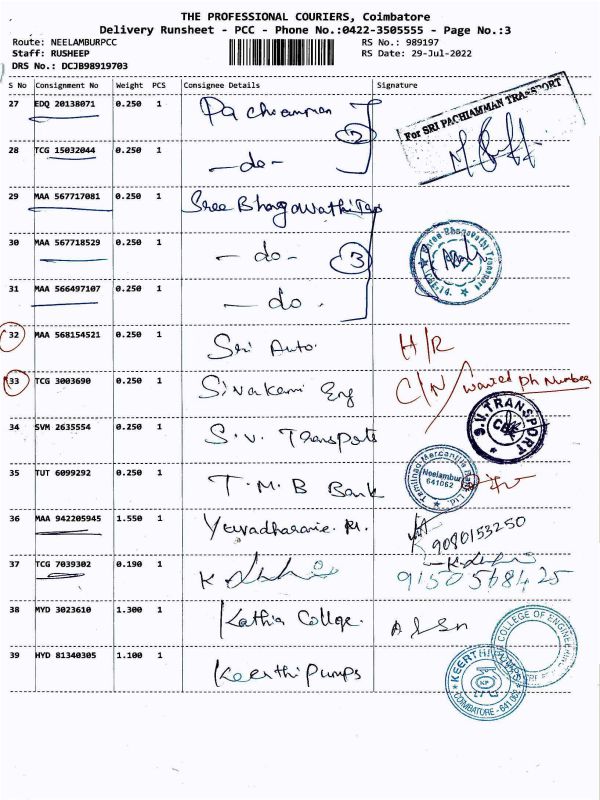 THE PROFESSIONAL COURIERS, Coimbatore
Delivery Runsheet - PCC - Phone No.:0422-3505555 - Page No.:3
Route: NEELAMBURPCC RS No.: 989197
Staff: RUSHEEP RS Date: 29-Jul-2022
DRS No.: DCJB98919703
S No Consignment No Weight PCS Consignee Details Signature
27 EDQ 20138071 0.250 1 Pachiamman
2
For SRI PACHIAMMAN TRANSPORT
28 TCG 15032044 0.250 1 -do-
29 MAA 567717081 0.250 1 Sree Bhagawathi Tap
30 MAA 567718529 0.250 1 -do- 3
Sree Bhagavathi Transport
31 MAA 566497107 0.250 1 -do.
32 MAA 568154521 0.250 1 Sri Auto. H/R
33 TCG 3003690 0.250 1 Sivakami Eng C/N wanted Ph Number
34 SVM 2635554 0.250 1 S.V. Transports
S.V. TRANSPORT CBE
35 TUT 6099292 0.250 1 T.M.B Bank
Tamilnad Mercantile Bank Ltd. Neelambur 641062
36 MAA 942205945 1.550 1 Yuvadharanie. M. 9080153250
37 TCG 7039302 0.190 1
9150568425
38 MYD 3023610 1.300 1 Kathia College.
COLLEGE OF ENGINEE
39 HYD 81340305 1.100 1 Keerthi Pumps
KEERTHI PUMPS KP COIMBATORE - 641 062